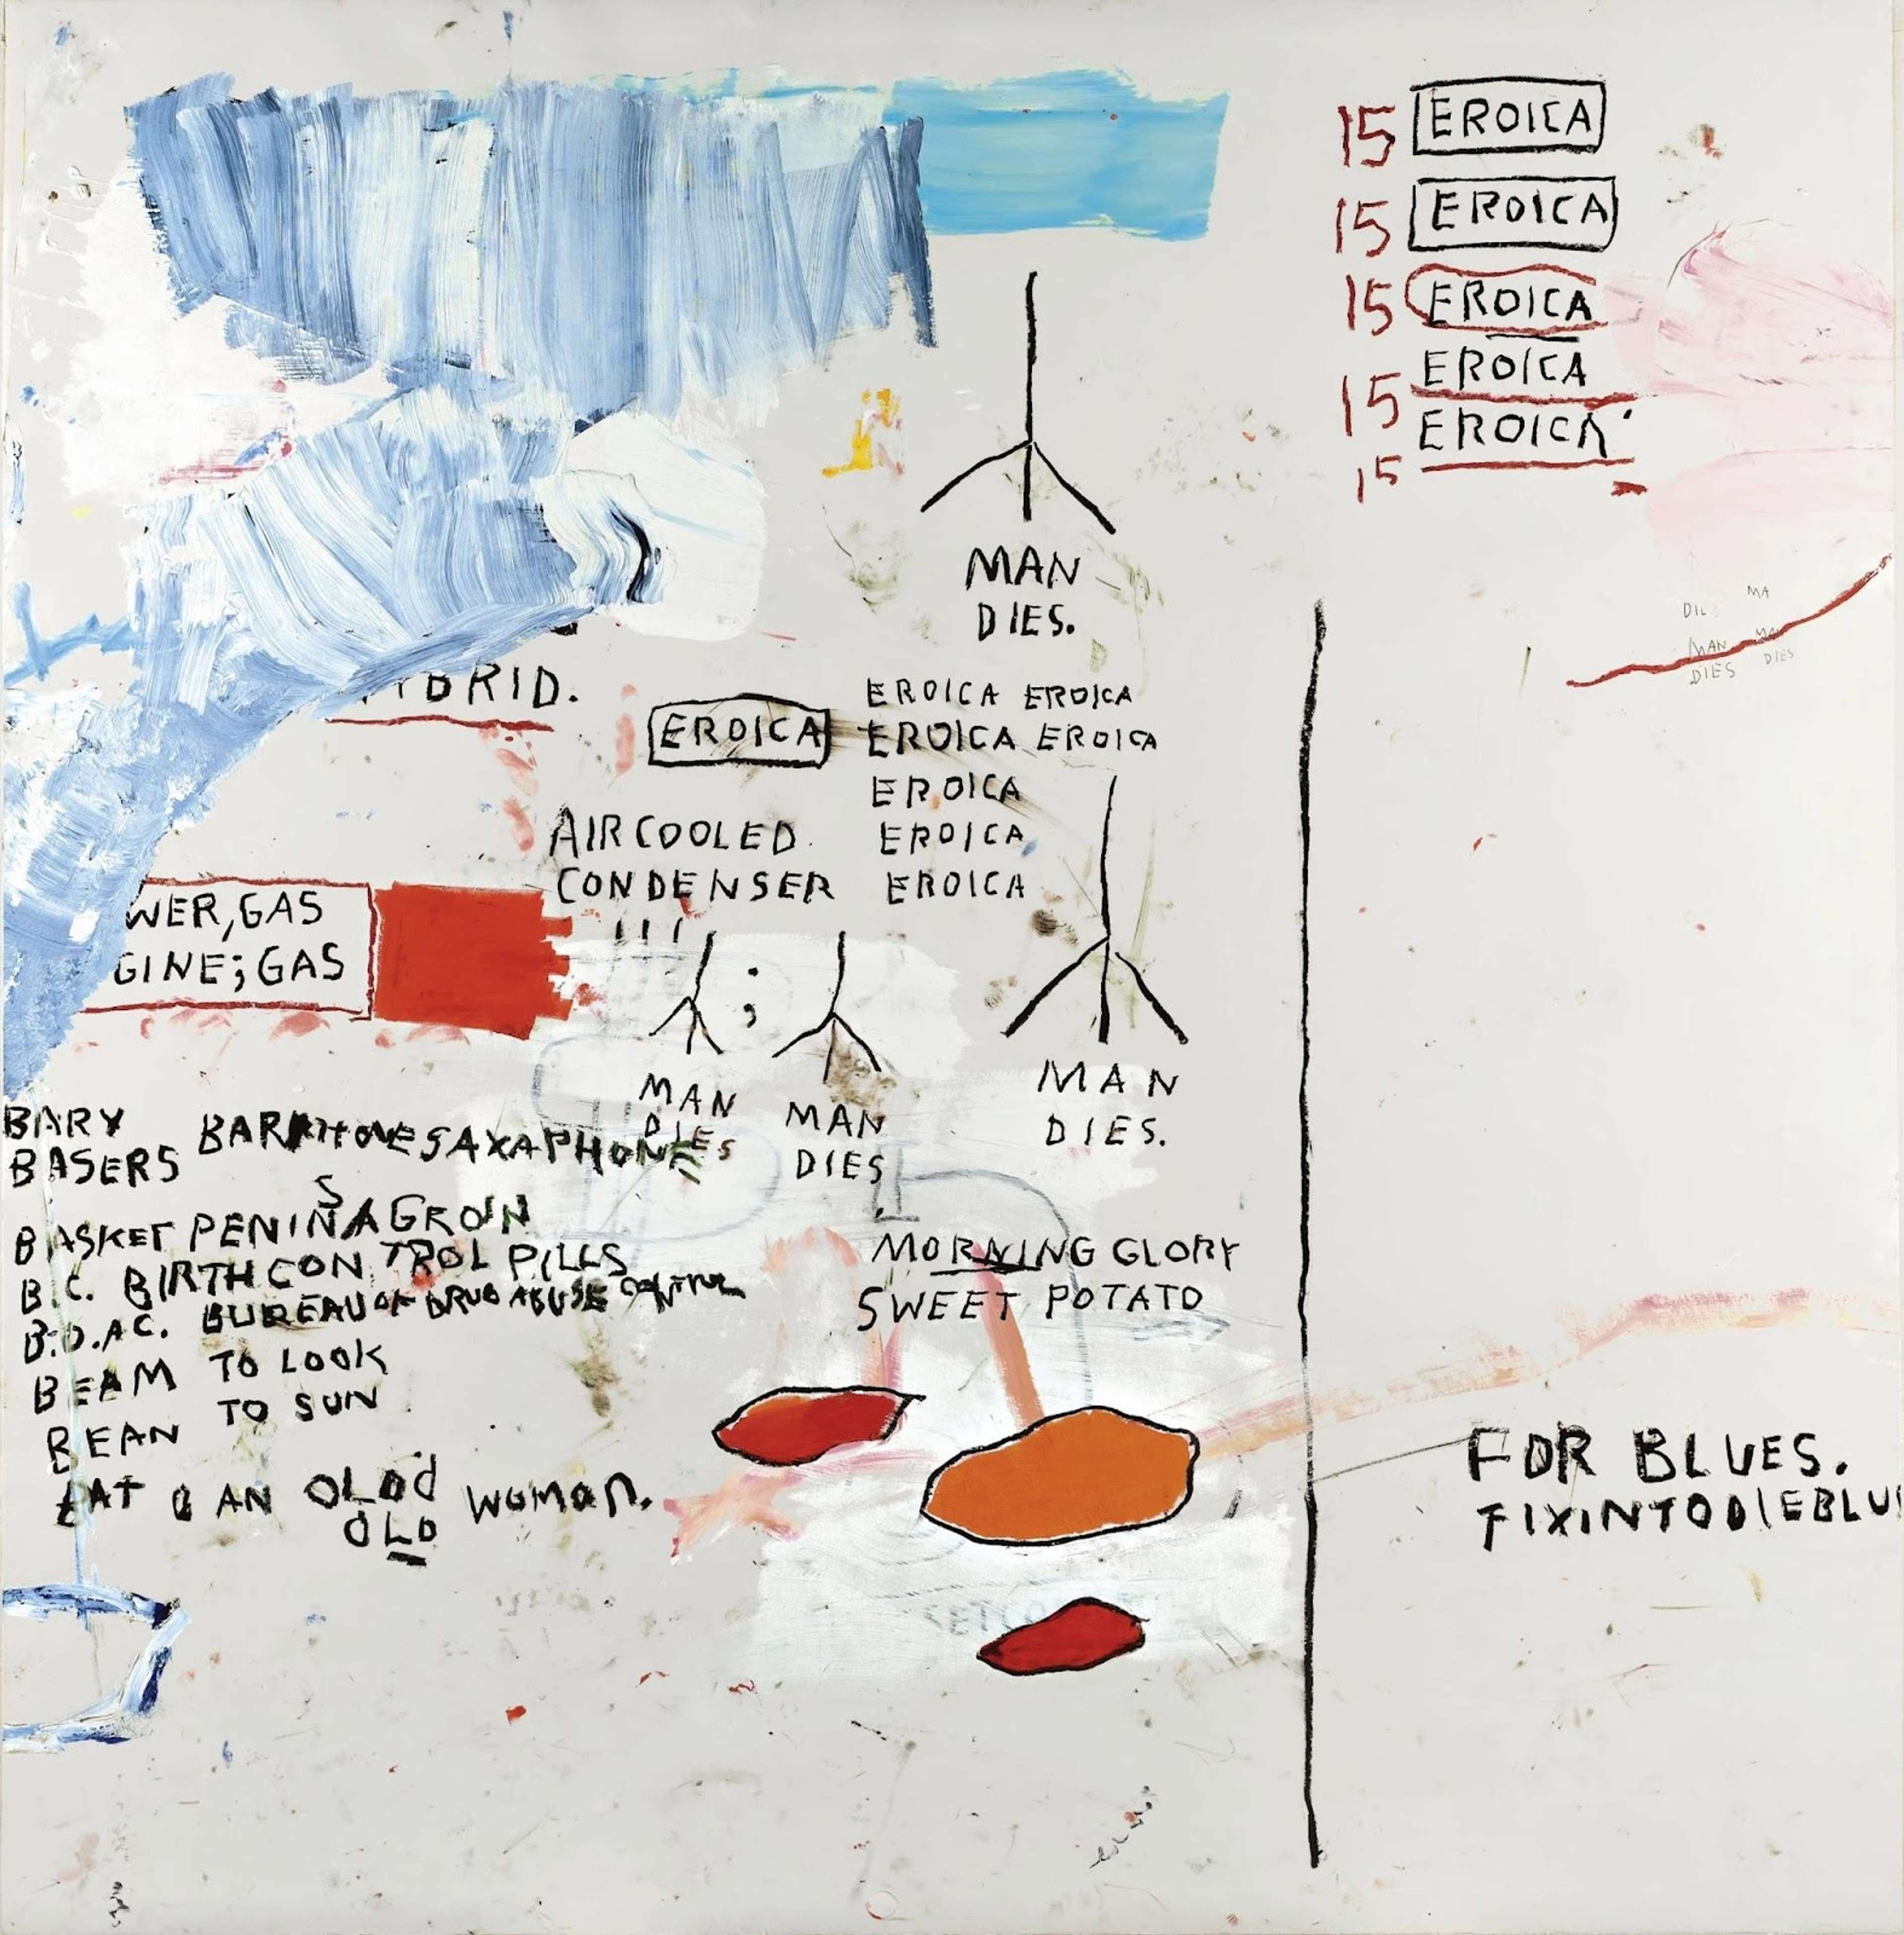 15 EROICA
15 EROICA
15 EROICA
15 EROICA
15 EROICA
MAN
DIES.
MA
MAN
DIES
DIES
YBRID.
EROICA
EROICA EROICA
EROICA EROICA
EROICA
EROICA
EROICA
AIRCOOLED
CONDENSER
WER, GAS
GINE; GAS
;
MAN
DIES
MAN
DIES
MAN
DIES.
BARY
BASERS
BARITONESAXAPHONE
S
BASKET PENINSA GROIN
B.C. BIRTH CONTROL PILLS
B.D.AC. BUREAU OF DRUG ABUSE CONTROL
BEAM TO LOOK
BEAN TO SUN
EAT AN OLD WOMAN.
OLD
MORNING GLORY
SWEET POTATO
FOR BLUES.
FIXINTODIEBLU